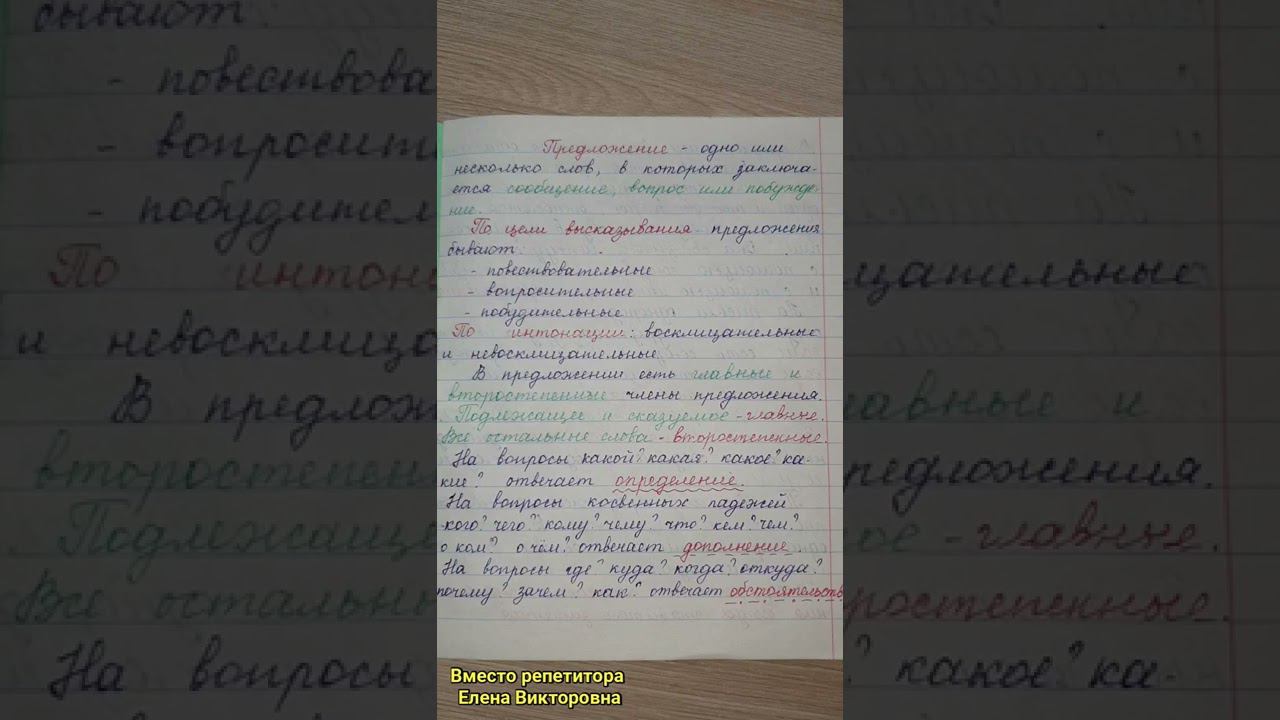 Предложение - одно или
несколько слов, в которых заключа-
ется сообщение, вопрос или побужде-
ние.
По цели высказывания предложения
бывают:
- повествовательные
- вопросительные
- побудительные
По интонации: восклицательные
и невосклицательные
В предложении есть главные и
второстепенные члены предложения.
Подлежащее и сказуемое - главные.
Все остальные слова - второстепенные.
На вопросы какой? какая? какое? ка-
кие? отвечает определение.
На вопросы косвенных падежей
кого? чего? кому? чему? что? кем? чем?
о ком? о чём? отвечает дополнение.
На вопросы где? куда? когда? откуда?
почему? зачем? как? отвечает обстоятельств
Вместо репетитора
Елена Викторовна